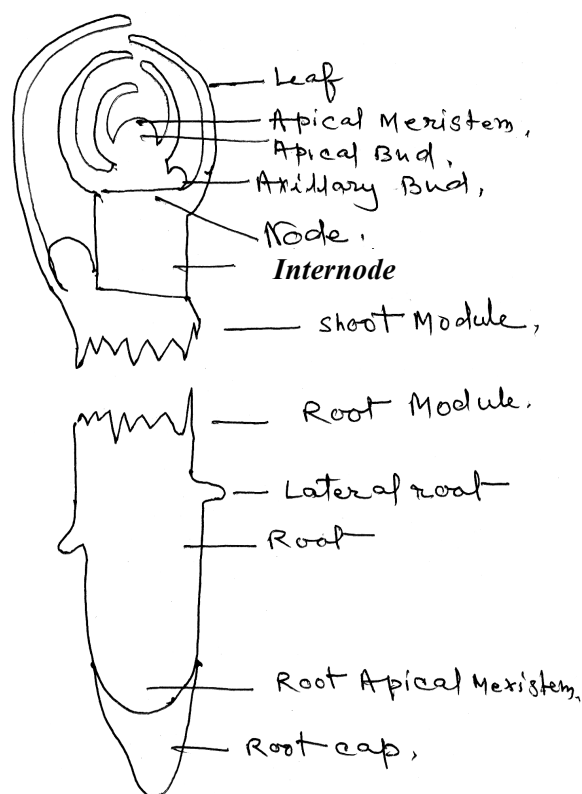 Leaf
Apical Meristem,
Apical Bud,
Axillary Bud,
Node.
Internode
Shoot Module,
Root Module.
Lateral root
Root
Root Apical Meristem,
Root cap,